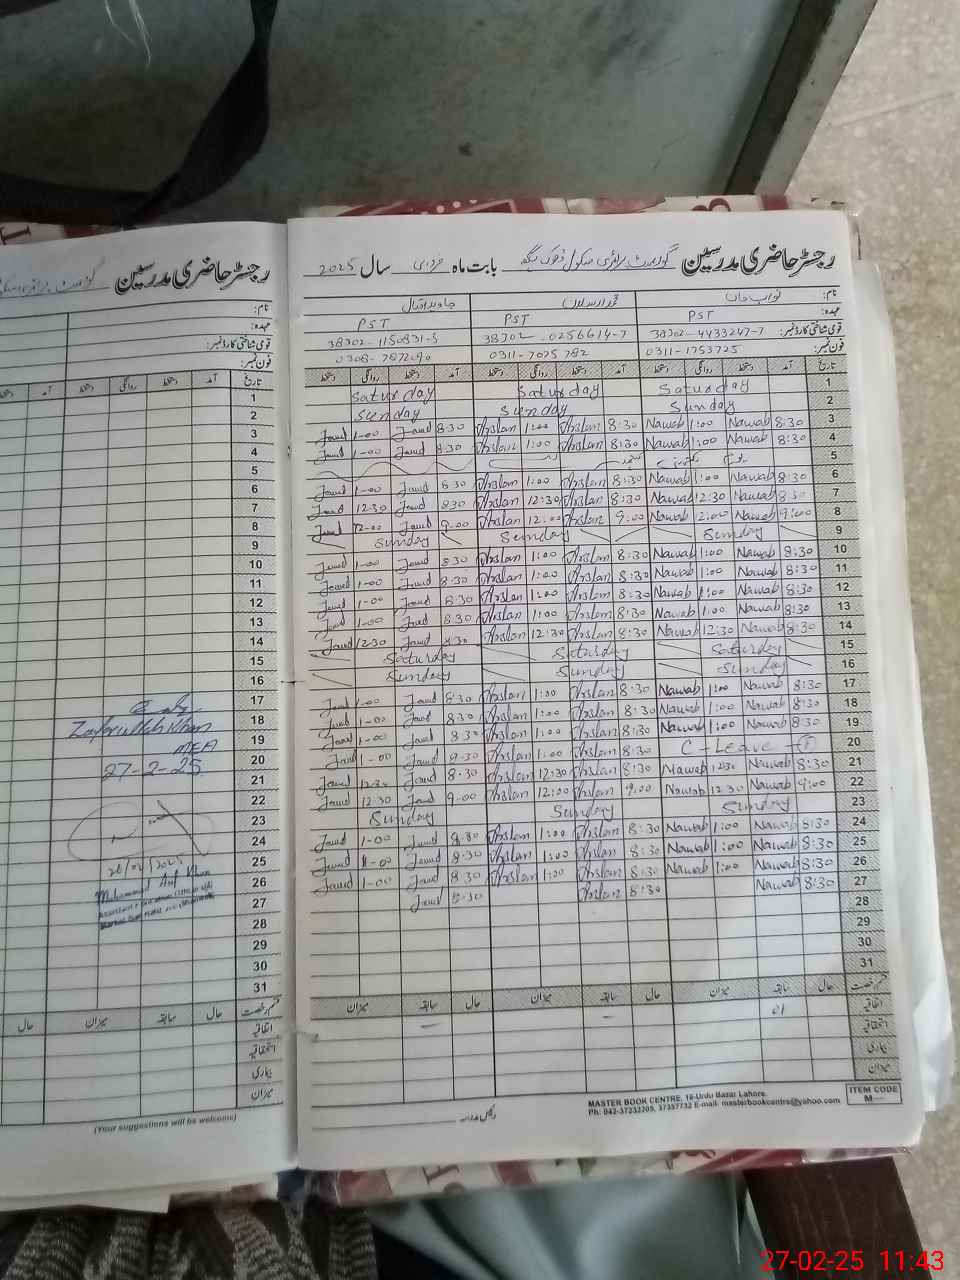 رجسٹر حاضری مدرسین گورنمنٹ پرائمری سکول ڈھوک بابت ماہ فروری سال 2025
نام: نواب خان محمد ارسلان جاوید اقبال
عہدہ: PST PST PST
قومی شناختی کارڈ نمبر: 38302-4433247-7 38302-0256614-7 38302-1150831-5
فون نمبر: 0311-1753725 0311-7025782
تاریخ آمد دستخط روانگی دستخط آمد دستخط روانگی دستخط آمد دستخط روانگی دستخط
1 Saturday Saturday Saturday
2 Sunday Sunday Sunday
3 8:30 Nawab 1:00 Nawab 8:30 Arslan 1:00 Arslan 8:30 Javed 1-00 Javed
4 8:30 Nawab 1:00 Nawab 8:30 Arslan 1:00 Arslan 8:30 Javed 1-00 Javed
5 یوم یکجہتی کشمیر
6 8:30 Nawab 1:00 Nawab 8:30 Arslan 1:00 Arslan 8:30 Javed 1-00 Javed
7 8:30 Nawab 12:30 Nawab 8:30 Arslan 12:30 Arslan 8:30 Javed 12-30 Javed
8 9:00 Nawab 12:00 Nawab 9:00 Arslan 12:00 Arslan 9-00 Javed 12-00 Javed
9 Sunday Sunday Sunday
10 8:30 Nawab 1:00 Nawab 8:30 Arslan 1:00 Arslan 8:30 Javed 1-00 Javed
11 8:30 Nawab 1:00 Nawab 8:30 Arslan 1:00 Arslan 8:30 Javed 1-00 Javed
12 8:30 Nawab 1:00 Nawab 8:30 Arslan 1:00 Arslan 8:30 Javed 1-00 Javed
13 8:30 Nawab 1:00 Nawab 8:30 Arslan 1:00 Arslan 8:30 Javed 1-00 Javed
14 8:30 Nawab 12:30 Nawab 8:30 Arslan 12:30 Arslan 8:30 Javed 12-30 Javed
15 Saturday Saturday Saturday
16 Sunday Sunday Sunday
17 8:30 Nawab 1:00 Nawab 8:30 Arslan 1:00 Arslan 8:30 Javed 1-00 Javed
18 8:30 Nawab 1:00 Nawab 8:30 Arslan 1:00 Arslan 8:30 Javed 1-00 Javed
19 8:30 Nawab 1:00 Nawab 8:30 Arslan 1:00 Arslan 8:30 Javed 1-00 Javed
20 C-Leave -① 8:30 Arslan 1:00 Arslan 8:30 Javed 1-00 Javed
21 8:30 Nawab 12:30 Nawab 8:30 Arslan 12:30 Arslan 8:30 Javed 12:30 Javed
22 9:00 Nawab 12:30 Nawab 9:00 Arslan 12:00 Arslan 9-00 Javed 12-30 Javed
23 Sunday Sunday Sunday
24 8:30 Nawab 1:00 Nawab 8:30 Arslan 1:00 Arslan 8:30 Javed 1-00 Javed
25 8:30 Nawab 1:00 Nawab 8:30 Arslan 1:00 Arslan 8:30 Javed 1-00 Javed
26 8:30 Nawab 1:00 Nawab 8:30 Arslan 1:00 Arslan 8:30 Javed 1-00 Javed
27 8:30 Nawab 8:30 Arslan 8:30 Javed
28
29
30
31
قسم رخصت حال سابقہ میزان حال سابقہ میزان حال سابقہ میزان
اتفاقیہ 01 — —
استحقاقیہ
بیماری
میزان
MASTER BOOK CENTRE, 19-Urdu Bazar Lahore.
Ph: 042-37232205, 37357732 E-mail: masterbookcentre@yahoo.com
ITEM CODE
M—
رجسٹر حاضری مدرسین گورنمنٹ پرائمری سکول
نام:
عہدہ:
قومی شناختی کارڈ نمبر:
فون نمبر:
تاریخ آمد دستخط روانگی دستخط آمد دستخط
1
2
3
4
5
6
7
8
9
10
11
12
13
14
15
16
17
18
19
20
21
22
23
24
25
26
27
28
29
30
31
Zafarullah Khan
MEA
27-2-25
Muhammad Asif Khan
قسم رخصت حال سابقہ میزان حال
اتفاقیہ
استحقاقیہ
بیماری
میزان
(Your suggestions will be welcome)
27-02-25 11:43